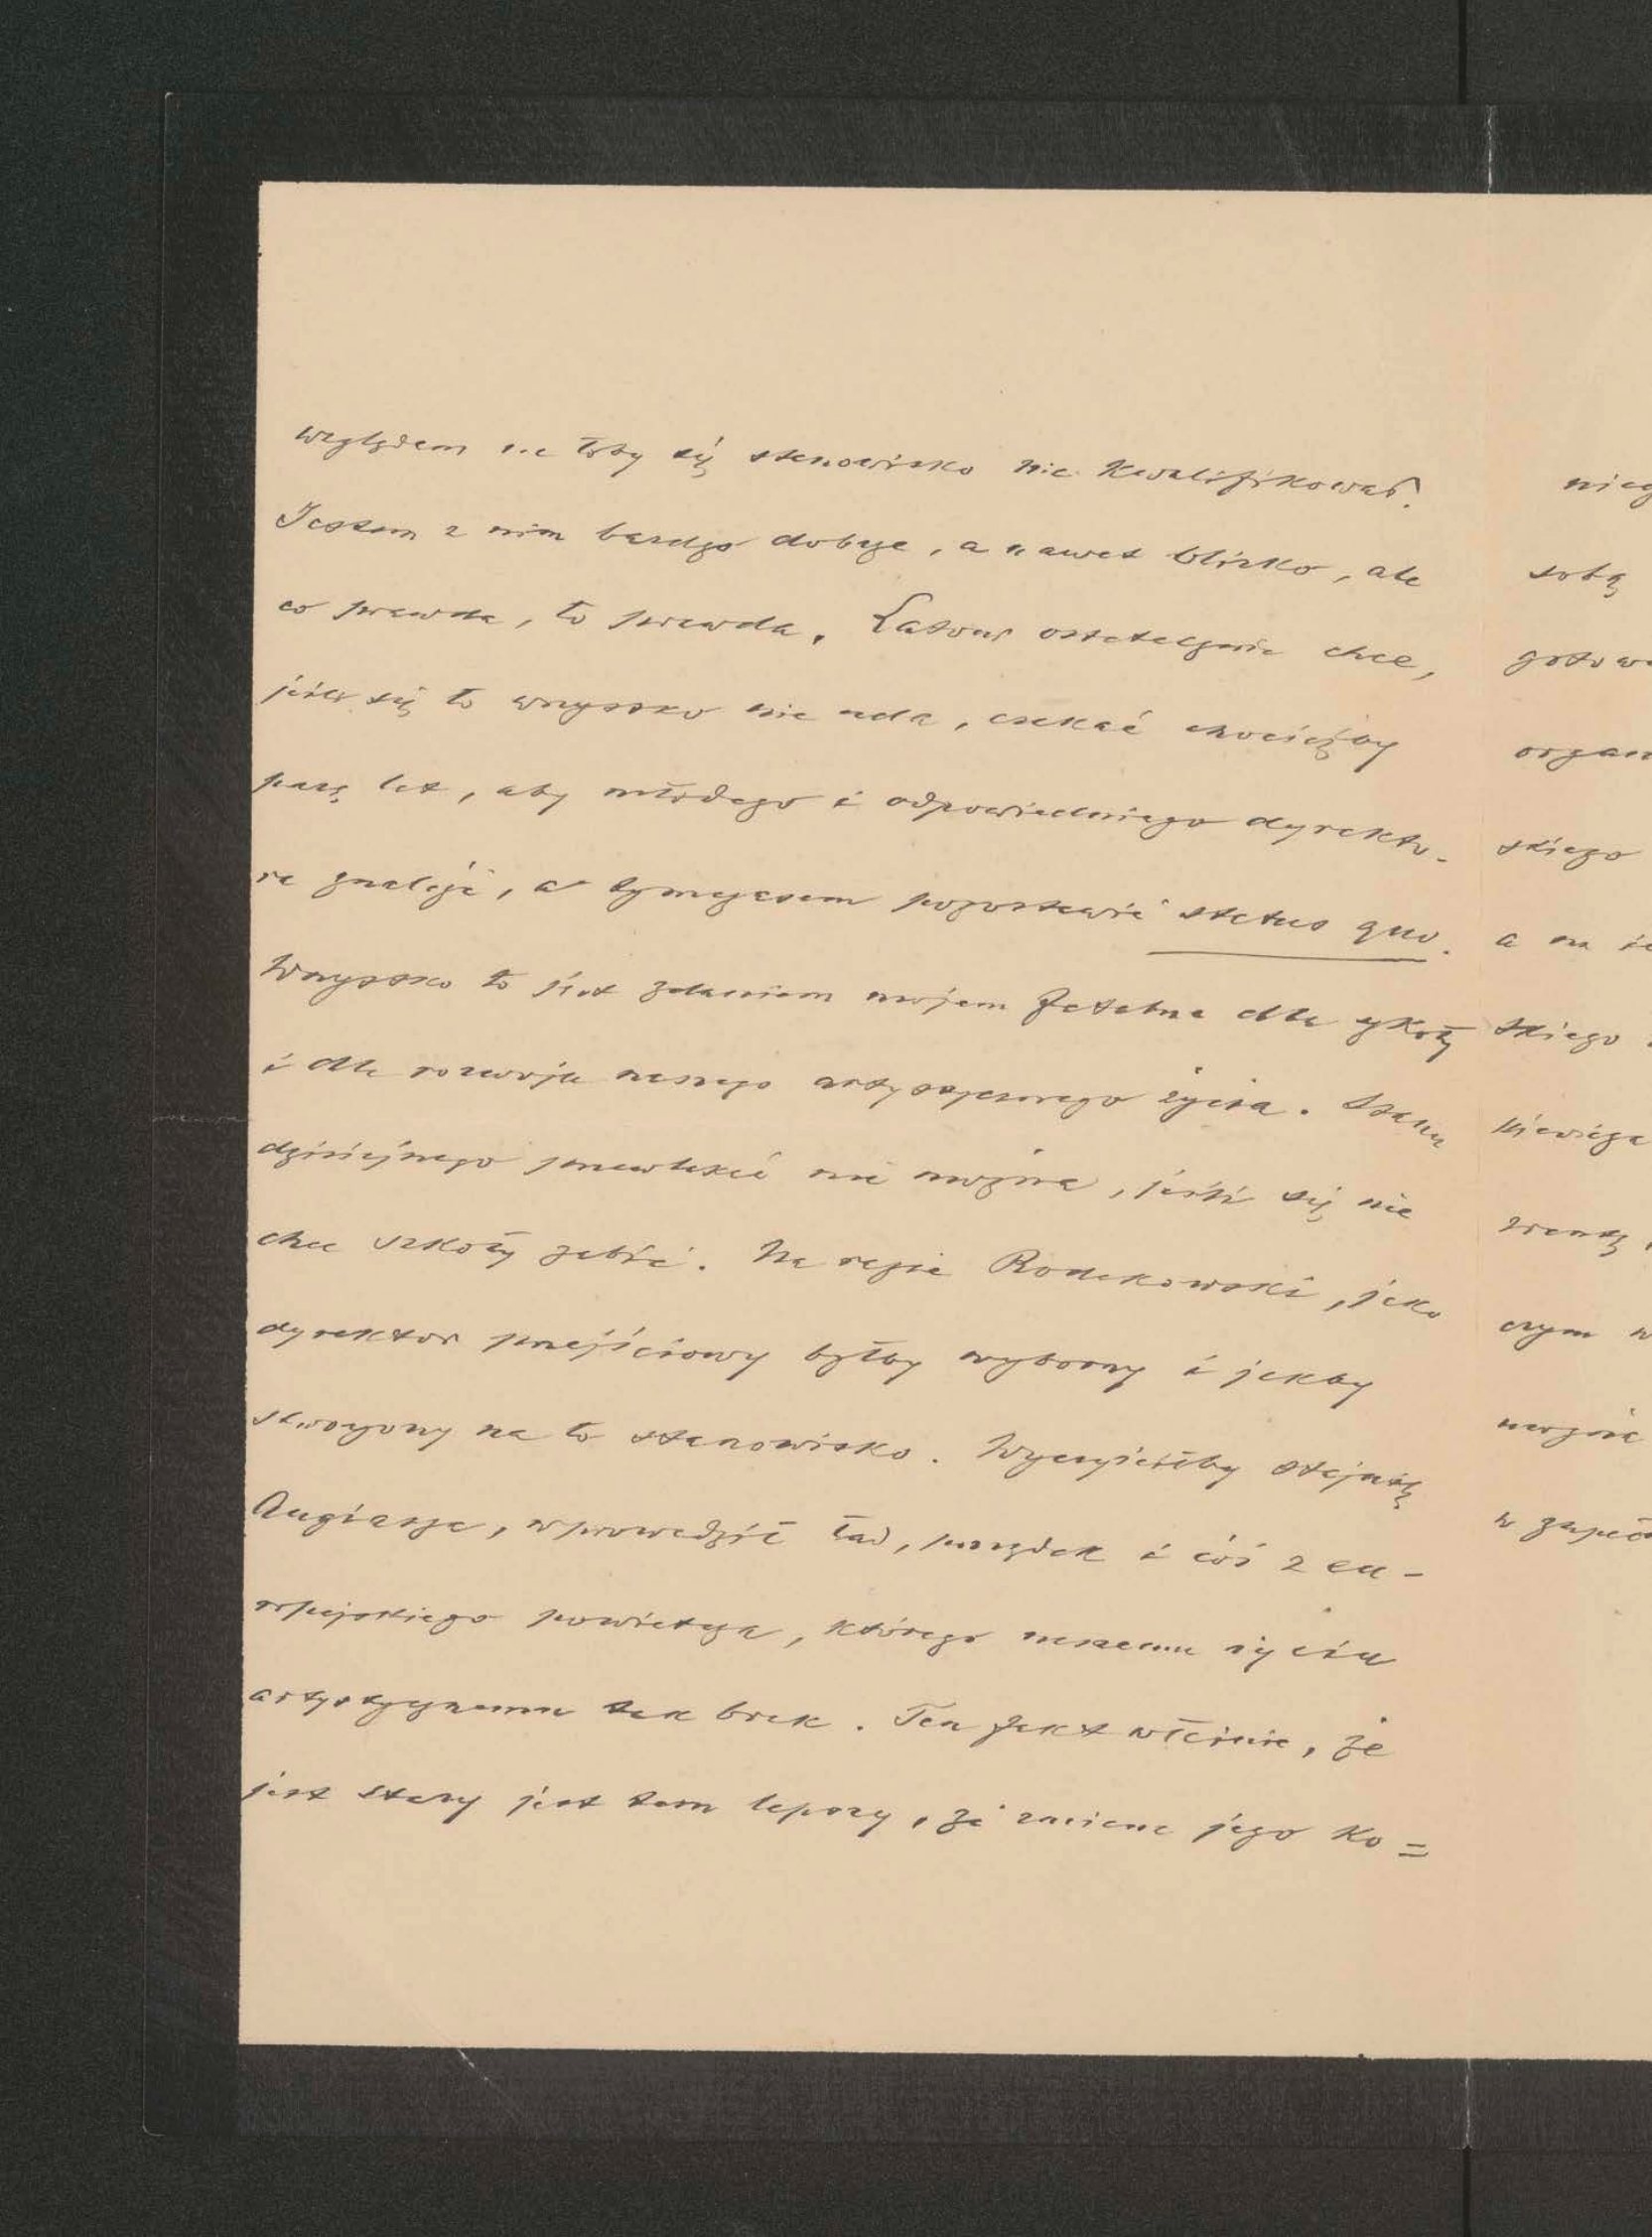 względem na toby się stanowisko nie kwalifikował.
Jestem z nim bardzo dobrze, a nawet blizko, ale
co prawda, to prawda. Latour ostatecznie chce,
jeśli się to wszystko nie uda, czekać chociażby
parę lat, aby młodego i odpowiedniego dyrekto-
ra znaleźć, a tymczasem pozostawić status quo.
Wszystko to jest zdaniem mojem fatalne dla szkoły
i dla rozwoju naszego artystycznego życia. Stanu
dzisiejszego przewlekać nie można, jeśli się nie
chce szkoły zabić. Na razie Rodakowski, jako
dyrektor przejściowy byłby wyborny i jakby
stworzony na to stanowisko. Wyczyściłby stajnię
Augiasza, wprowadził ład, porządek i coś z eu-
ropejskiego powietrza, którego naszemu życiu
artystycznemu tak brak. Ten fakt właśnie, że
jest stary jest tem lepszy, że zmiana jego ko=
nieg
sobą
gotow
organ
skiego
a na
skiego
kiewicza
zresztą
czym w
można
w zupeł